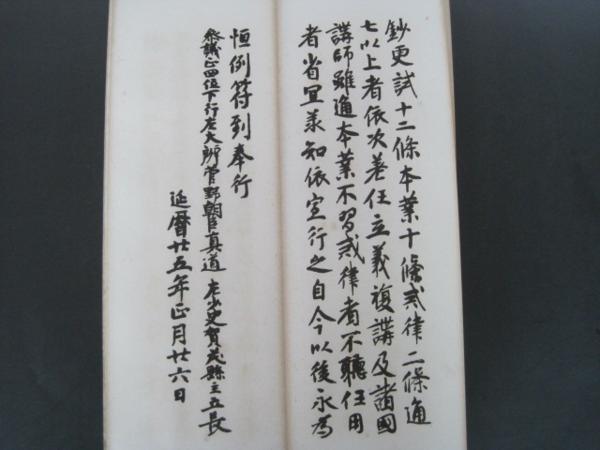 鈔更試十二條本業十條戒律二條通
七以上者依次差任立義複講及諸國
講師雖通本業不習戒律者不聽任用
者省宜承知依宣行之自今以後永為
恒例符到奉行
參議正四位下行左大辨菅野朝臣真道 左少史賀茂縣主立長
延曆廿五年正月廿六日